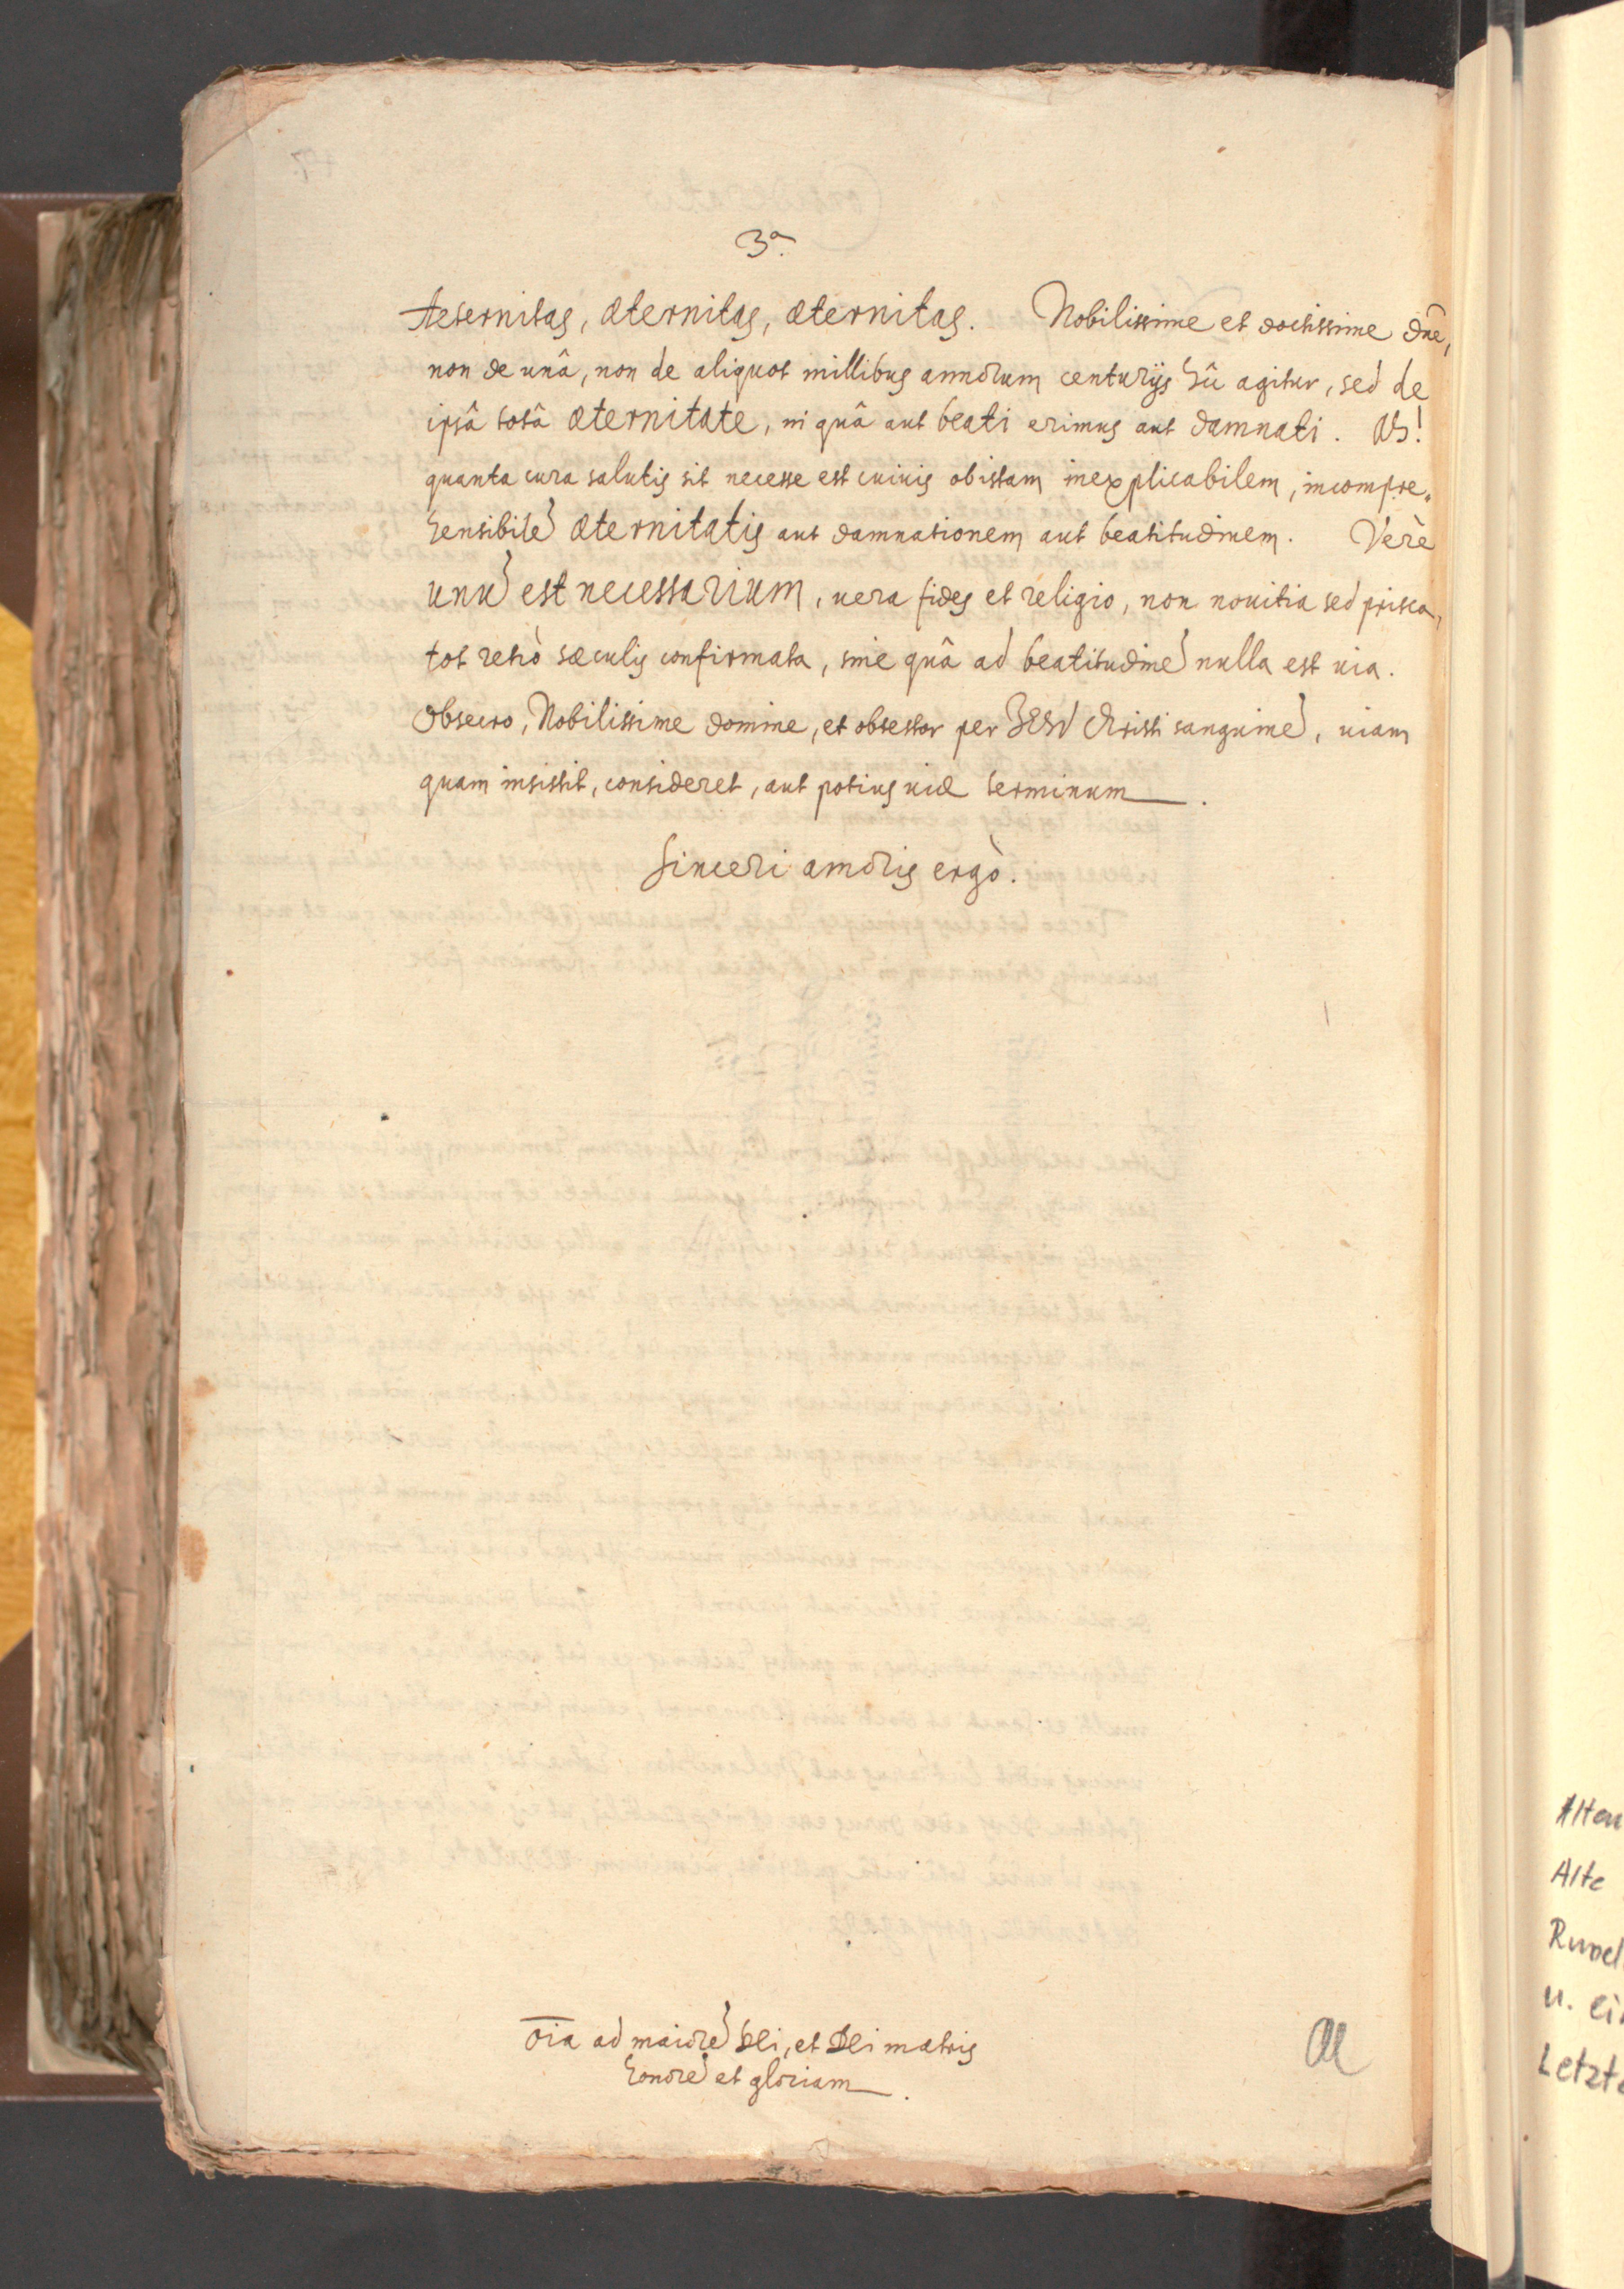 3ª.
Aeternitas, æternitas, æternitas. Nobilissime et doctissime dñe,
non de unâ, non de aliquot millibus annorum centurijs hîc agitur, sed de
ipsâ totâ æternitate, in quâ aut beati erimus aut damnati. Ah!
quanta cura salutis sit necesse est cuivis ob istam inexplicabilem, incompre„
hensibilē æternitatis aut damnationem aut beatitudinem. Verè
unū est necessarium, uera fides et religio, non nouitia sed prisca,
tot retrò sæculis confirmata, sine quâ ad beatitudinē nulla est uia.
Obsecro, Nobilissime domine, et obtestor per IESV Christi sanguinē, uiam
quam insistit, consideret, aut potius uiæ terminum.
Sinceri amoris ergò.
oīa ad maiorē Dei, et Dei matris
honorē et gloriam.
Alte
Letzt